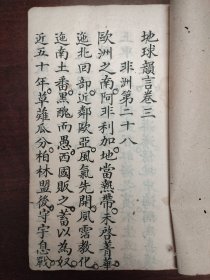 地球韻言卷三
非洲第二十八
歐洲之南阿非利加地當熱帶未啓菁華
迤北回部近鄰歐亞風氣先開風霑教化
迤南土番黑醜而愚西國販之蓄以為奴
近五十年草薙瓜分柏林盟後守宇息戰